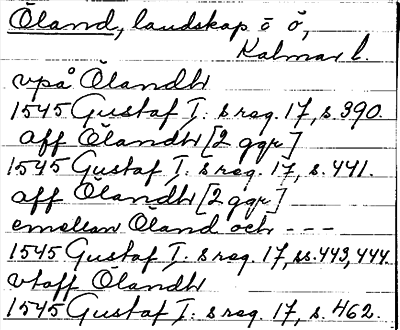 Öland, landskap o ö,
Kalmar l.
vpå Ölandh
1545 Gustaf I:s reg. 17, s. 390.
aff Ölandh [2 ggr]
1545 Gustaf I:s reg. 17, s. 441.
aff Ölandh [2 ggr]
emellan Öland och - - -
1545 Gustaf I:s reg. 17, ss. 443, 444.
vtaff Ölandh
1545 Gustaf I:s reg. 17, s. 462.